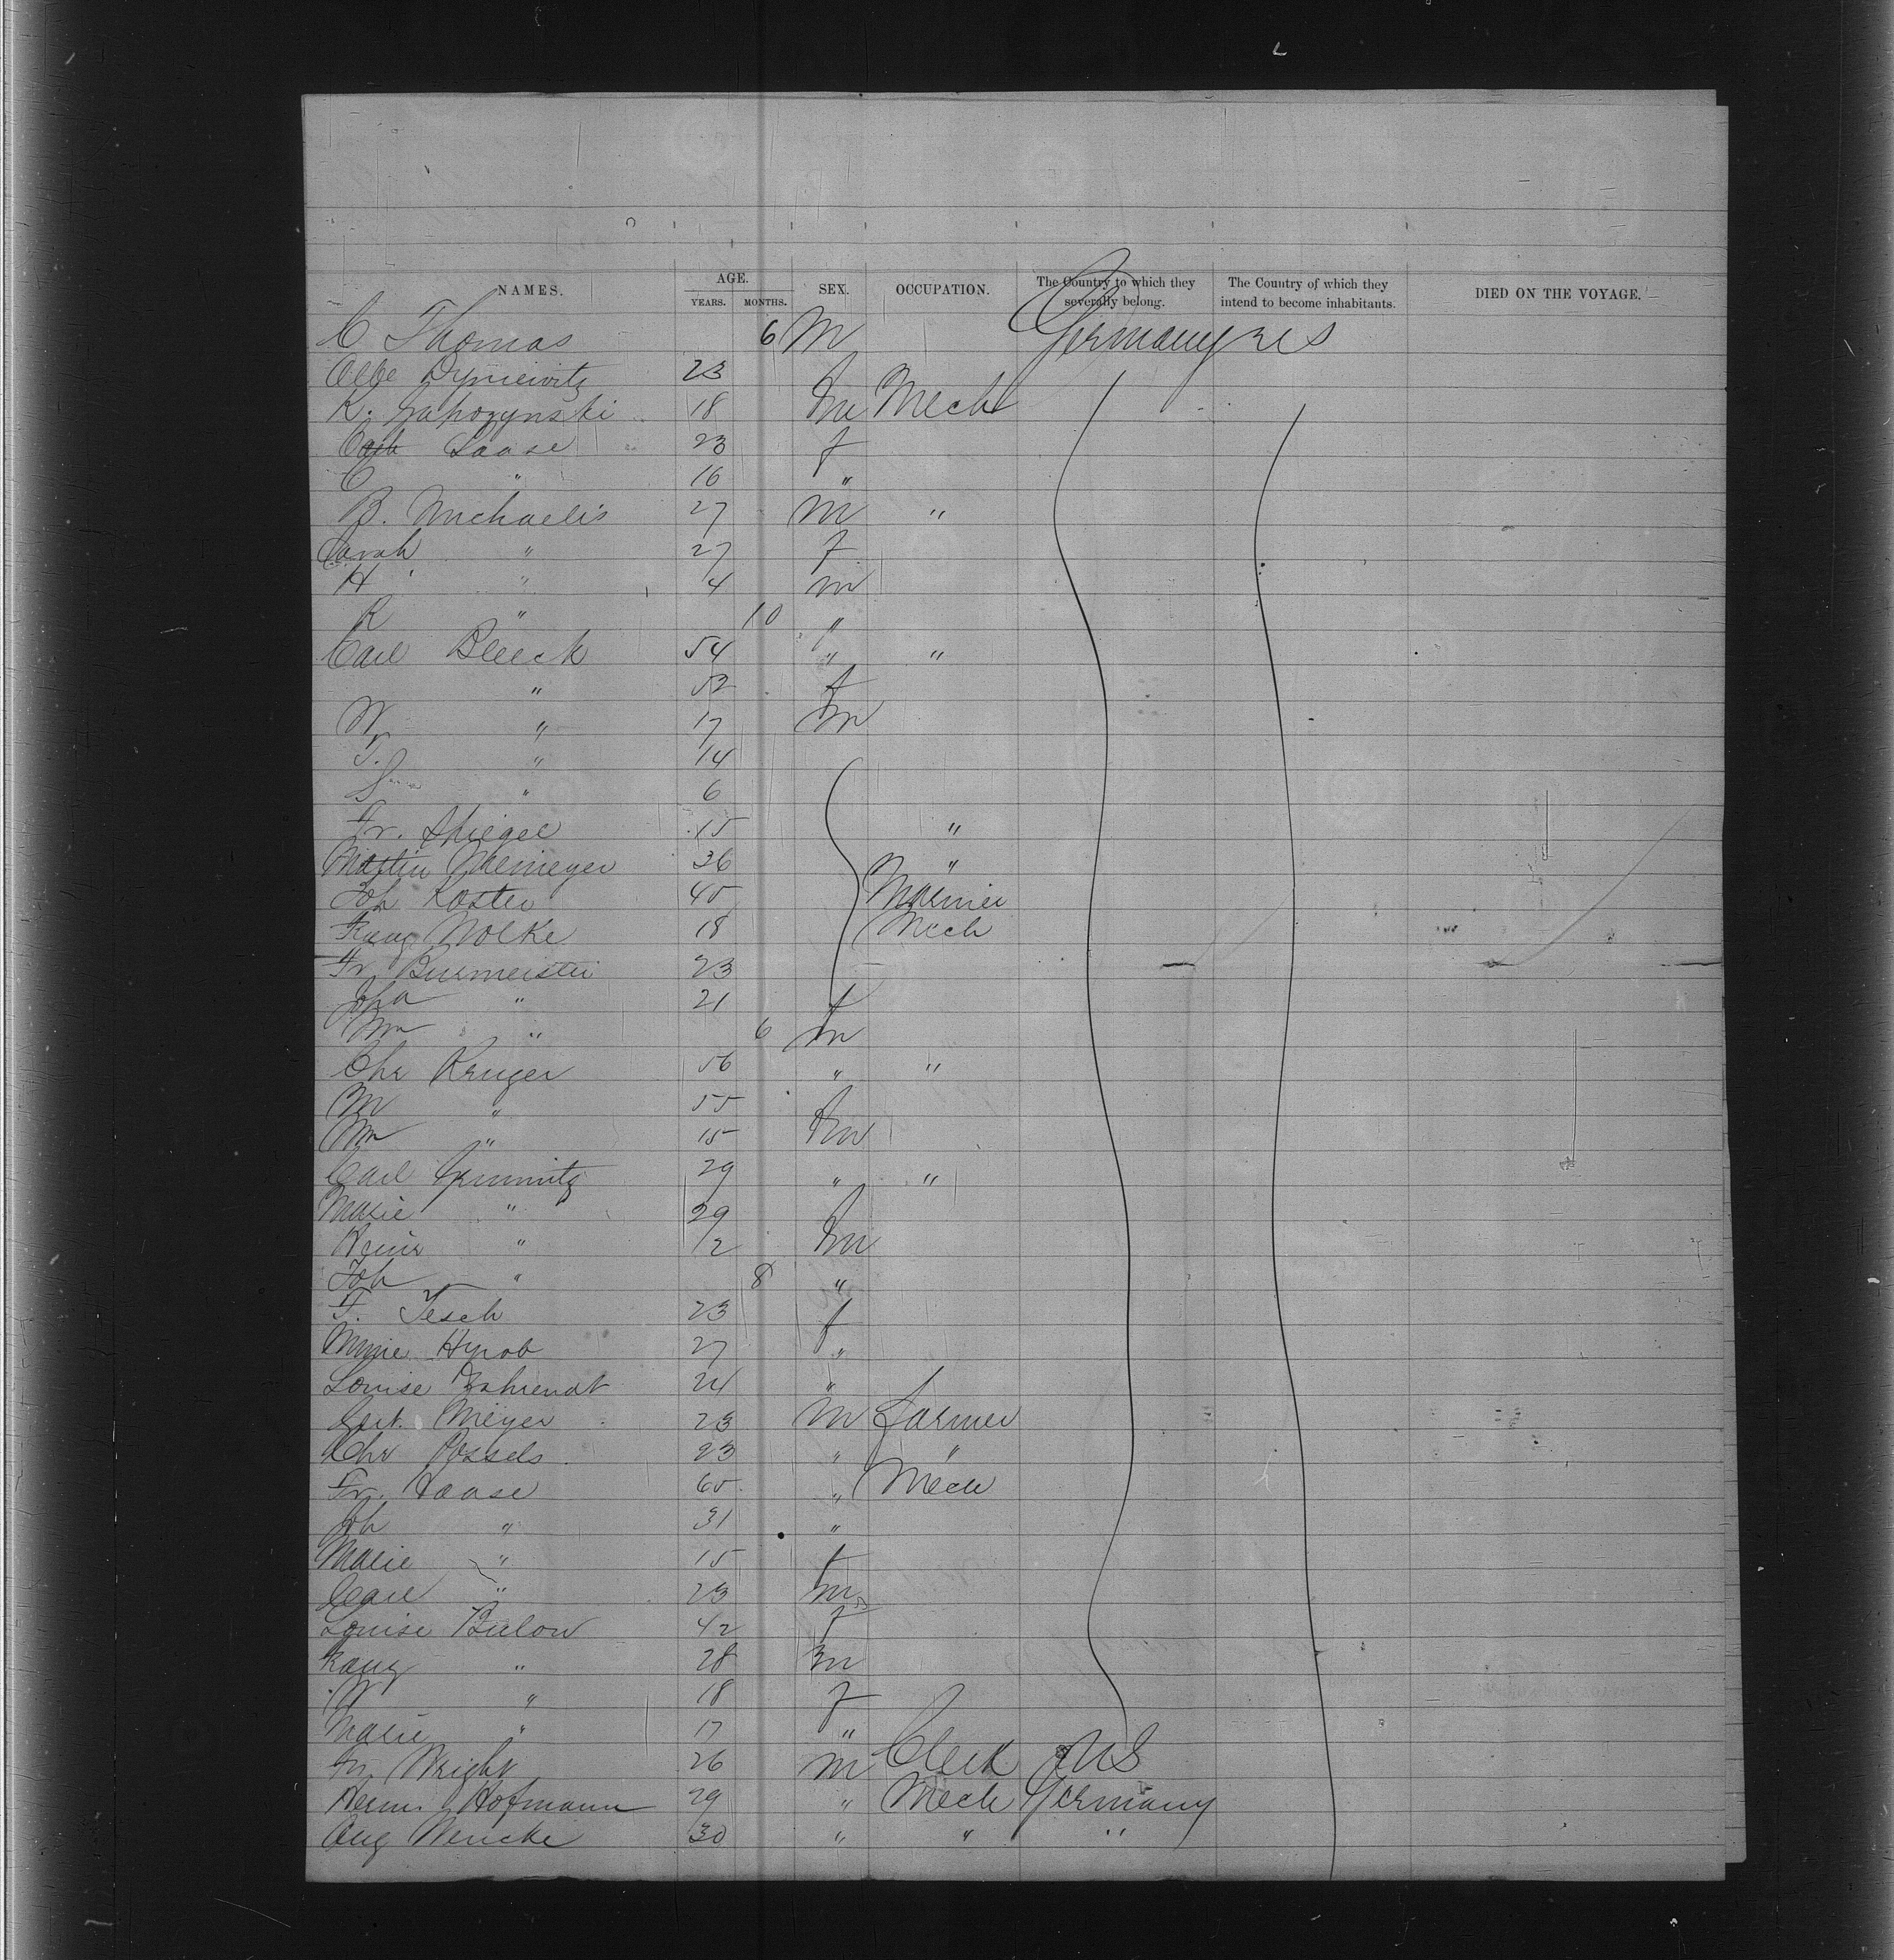 NAMES. AGE. YEARS. MONTHS. SEX. OCCUPATION. The Country to which they severally belong. The Country of which they intend to become inhabitants. DIED ON THE VOYAGE.
C Thomas 6 M Germany U S
Dyniewitz 23
K. 18 m Mech
Haase 23 f
C " 16 "
B. Michaelis 27 m "
Sarah " 27 f
H " 4 m
R " 10 "
Carl Bleeck 54 " "
" 52 f
W " 17 m
T. " 14
S " 6
Fr. Spiegel 15 "
Martin Niemeyer 36 "
Joh Koster 45
Franz Nolke 18 Mech
Fr. Burmeister 23
Joha " 21 f
Wm " 6 m
Chr Kruger 56 " "
M " 55
Wm " 15 m
Carl 29 " "
Marie " 29
Heinr " 1/2 m
Joh " 8 "
F. Tesch 23 f
Mine 27 "
Louise 24 "
Gert. Meyer 23 m Farmer
Chr 23 " "
Fr. Haase 65 " Mech
Joh " 31 "
Marie " 15 f
Carl " 23 m
Louise Bulow 42 f
Franz " 28 m
W " 18 f
Marie " 17 "
Fr. Wright 26 m Clerk U S
Herm. Hofmann 29 " Mech Germany
Aug Wencke 30 " " "